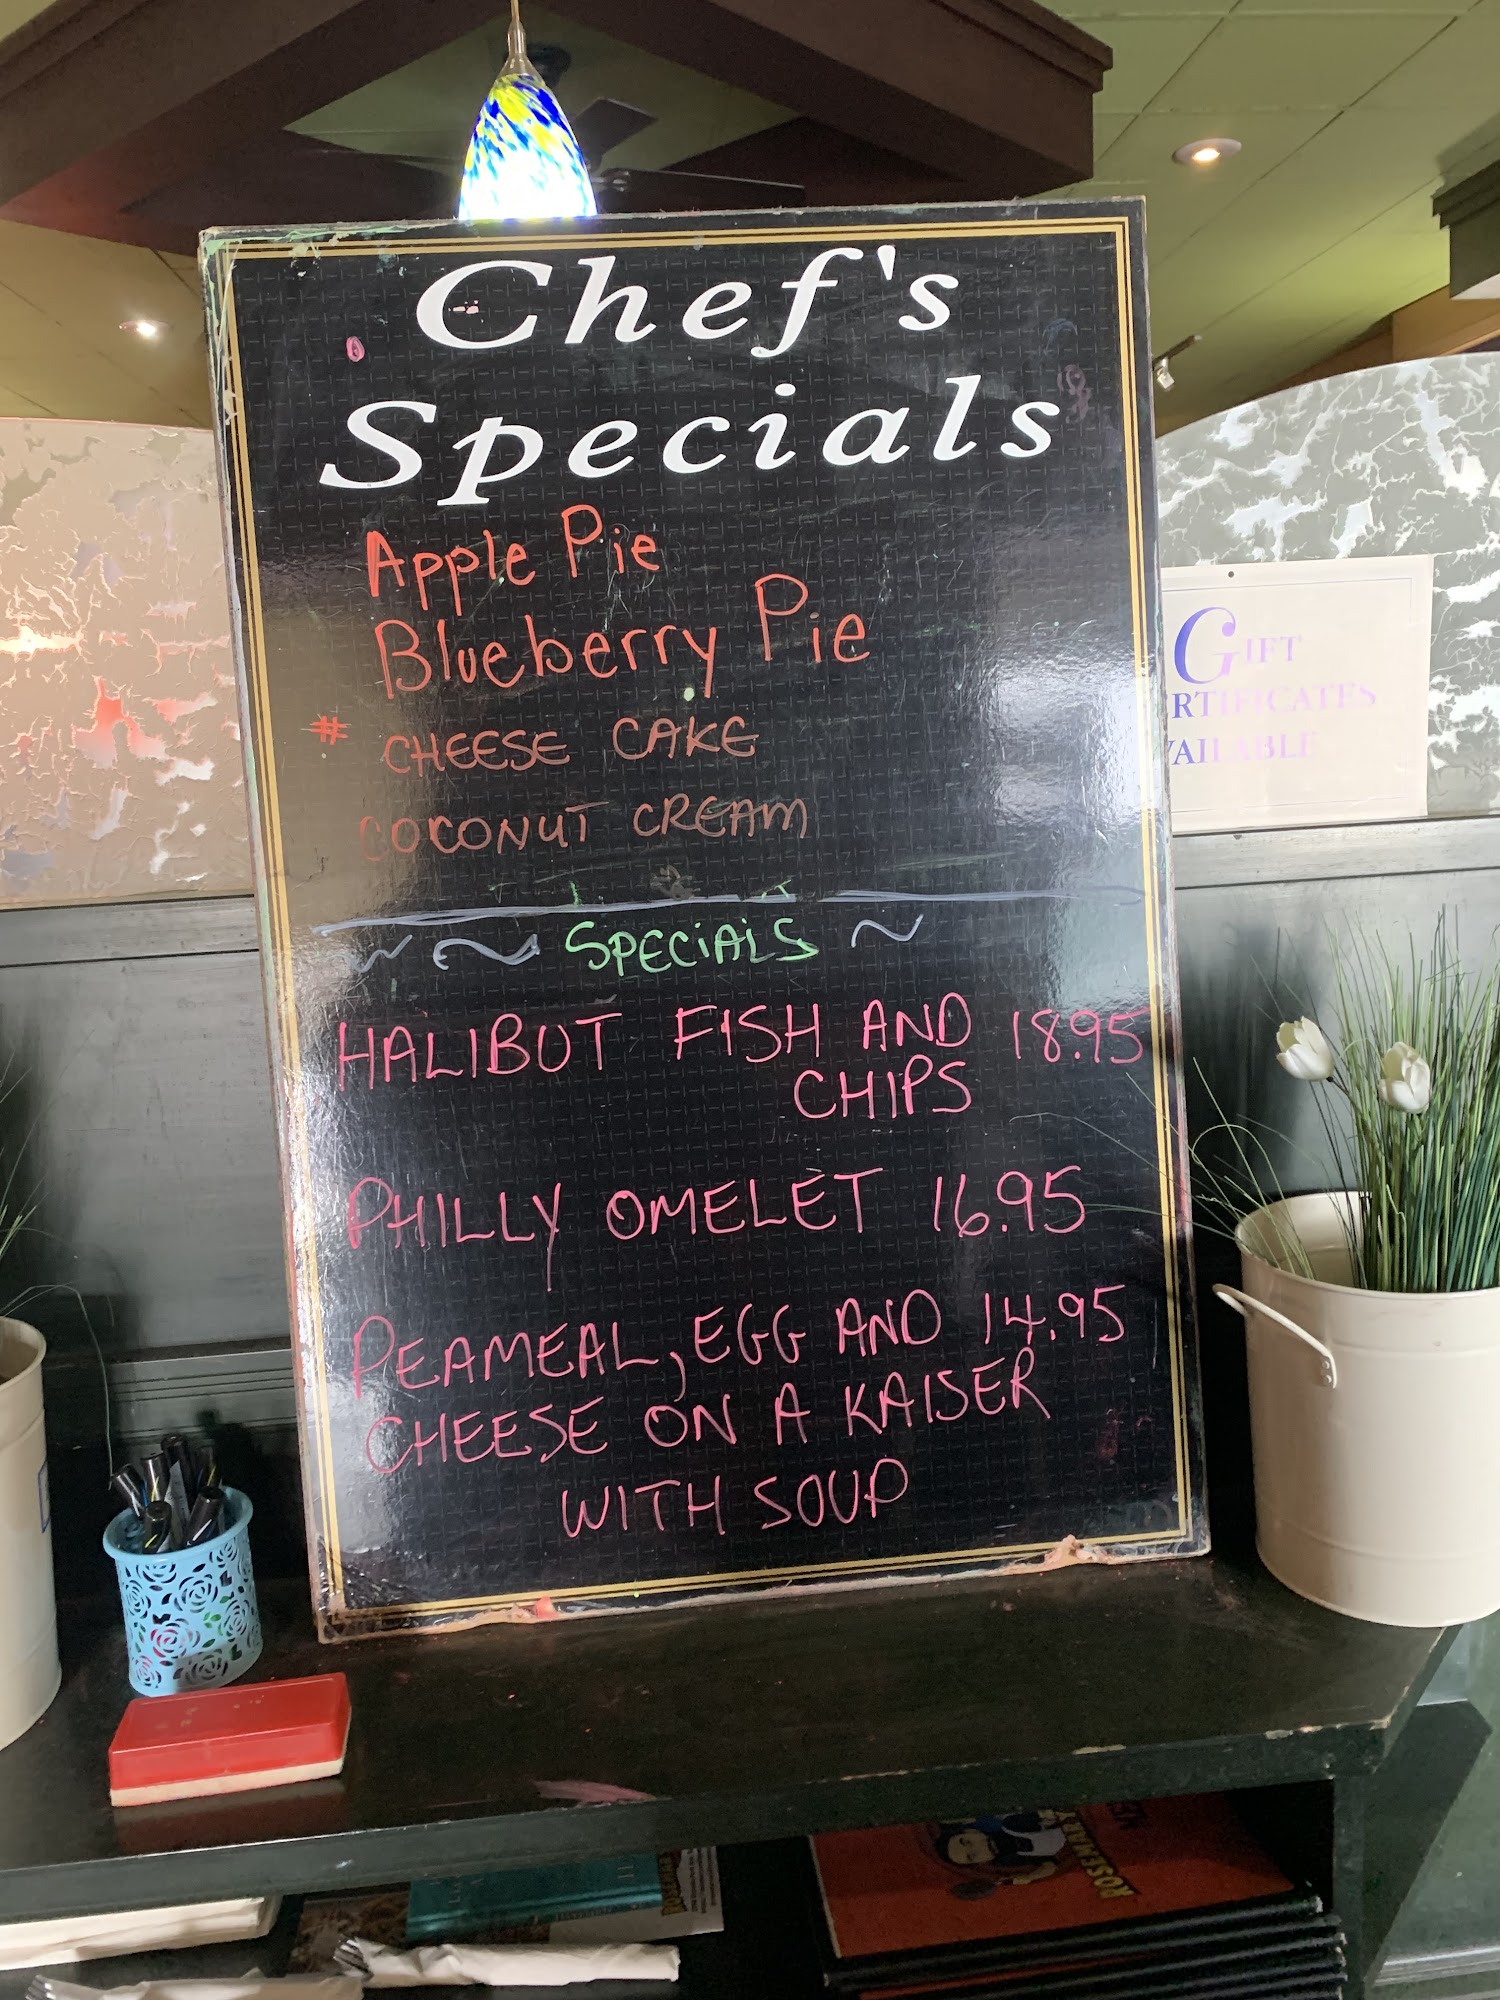 Chef's
Specials
Apple Pie
Blueberry Pie
# CHEESE CAKE
COCONUT CREAM
~ ~ SPECIALS ~
HALIBUT FISH AND 18.95
CHIPS
PHILLY OMELET 16.95
PEAMEAL, EGG AND 14.95
CHEESE ON A KAISER
WITH SOUP
GIFT
RTIFICATES
VAILABLE
ROSEMARY